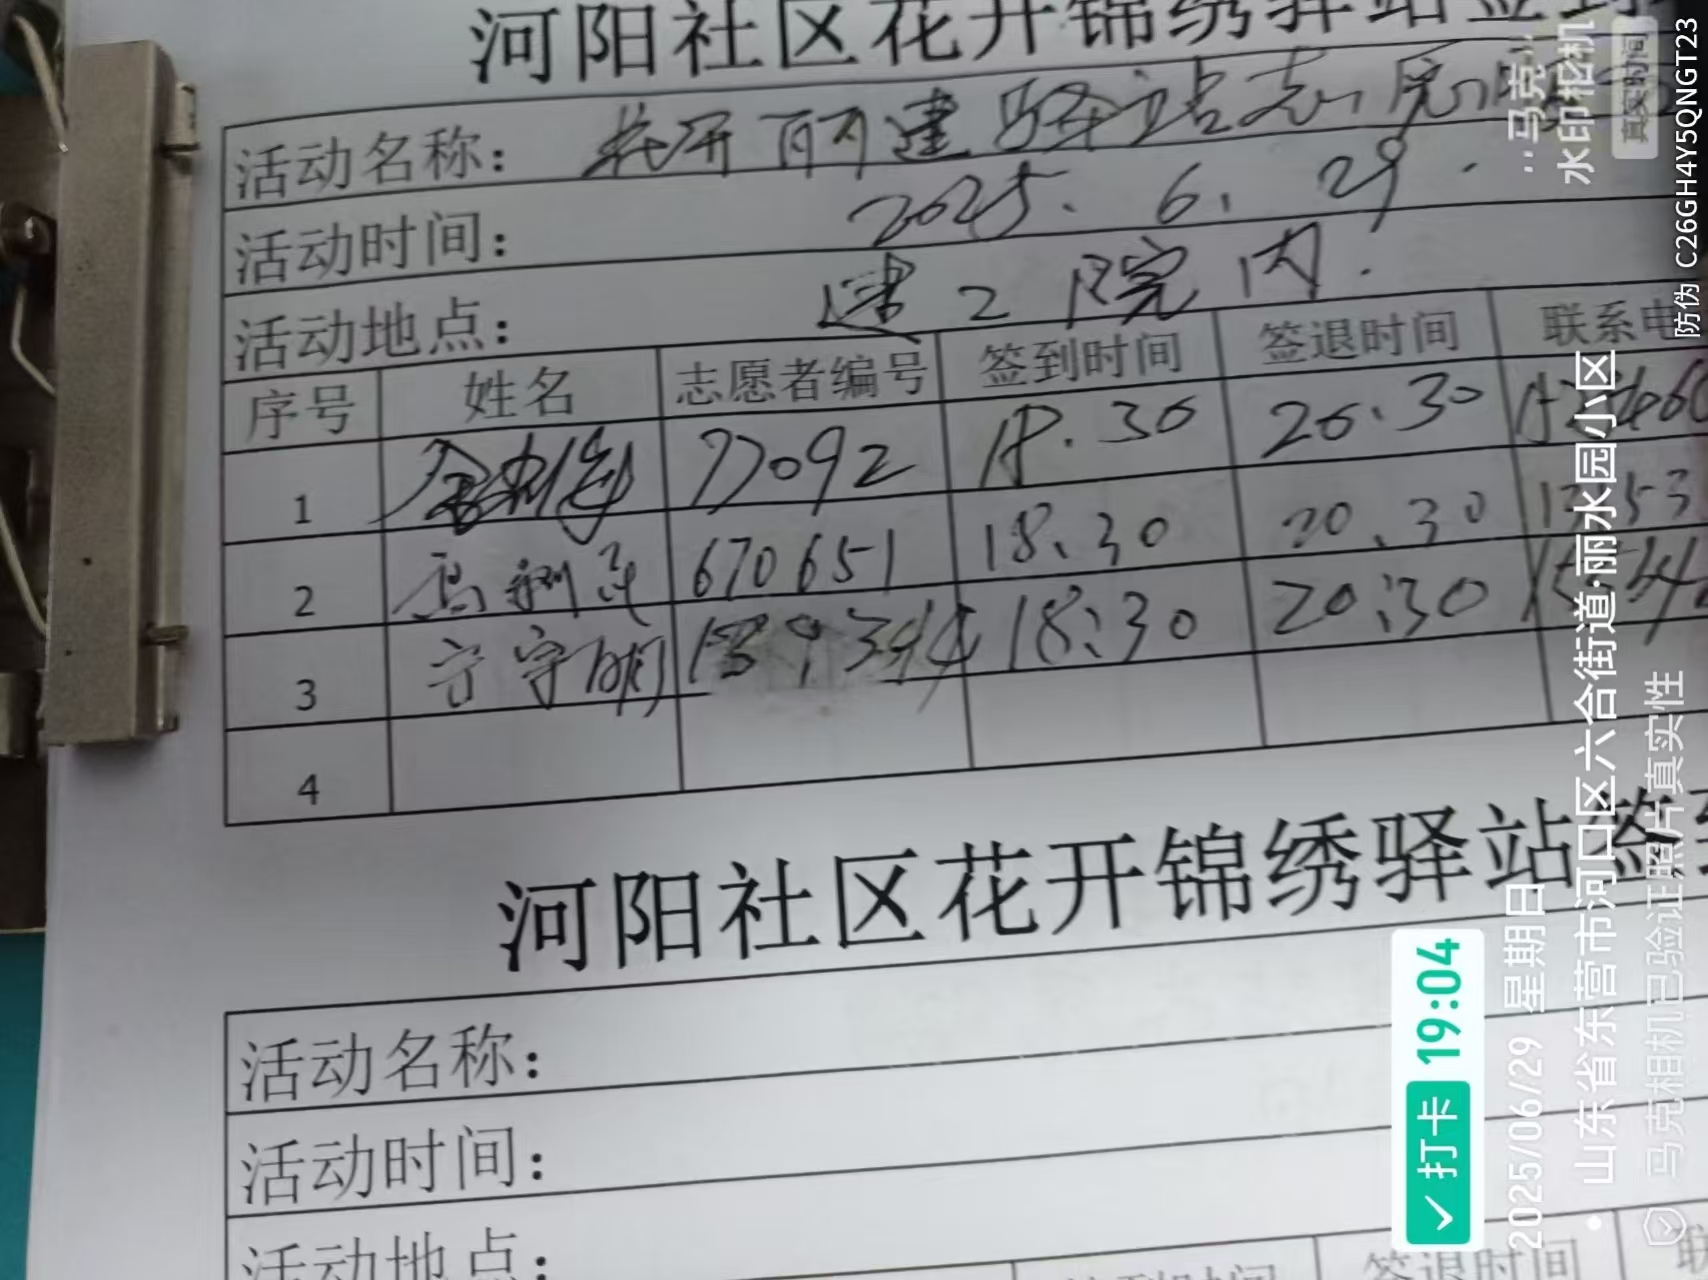 河阳社区花开锦绣驿站签到
活动名称： 花开丽建驿站志愿
活动时间： 2025. 6. 29.
活动地点： 建工院内.
序号 姓名 志愿者编号 签到时间 签退时间 联系电
1 77092 18.30 20.30
2 670651 18.30 20.30
3 宁守明 18:30 20:30
4
河阳社区花开锦绣驿站签到
活动名称：
活动时间：
活动地点：
签到时间 签退时间 联
马克
水印相机
真实时间
防伪 C26GH4Y5QNGT23
打卡 19:04
2025/06/29 星期日
山东省东营市河口区六合街道·丽水园小区
马克相机已验证照片真实性